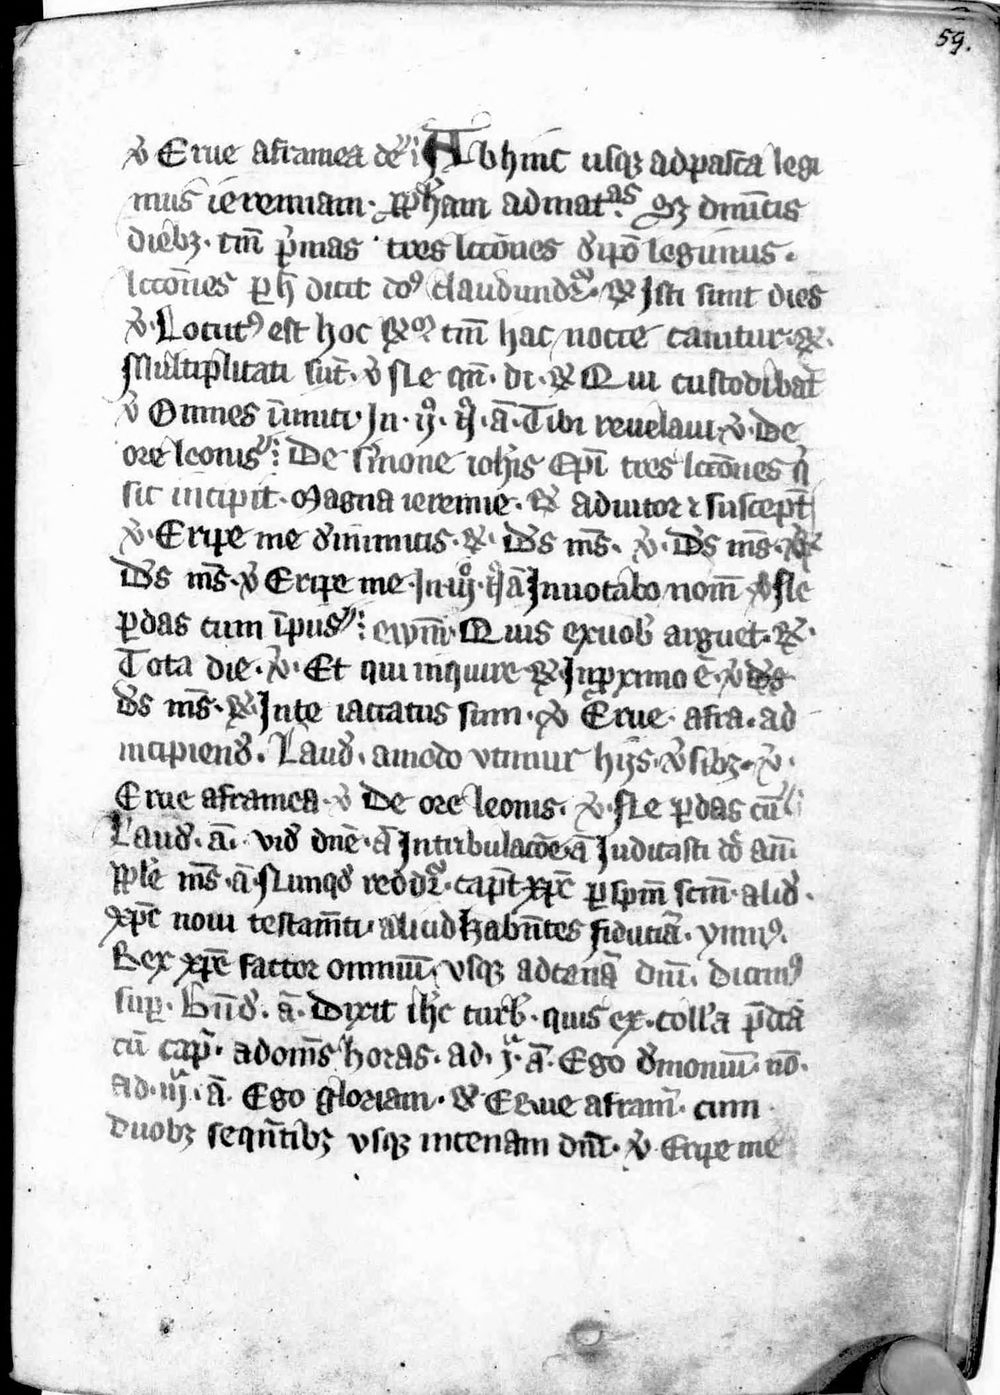 59.
℣ Erue aframea de Abhinc usqꝫ adpasca legi
mus ieremiam. ꝓpham admatᵃˢ. sꝫ dnīcis
diebꝫ. tm̄ pͥmas tres lccōnes legimus.
lccōnes dicit claudund. ℟ Isti sunt dies
℣. Locutꝰ est hoc tm̄ hac nocte canitur. ℟.
Multiplicati sūt. ℣ Ne qn̄. di. ℟ Qui custodibāt
℣ Omnes in̄mici. In. ij. ā. Tibi reuelaui. ℣. De
ore leonis. De sermone ioh̄is tres lccōnes
sic incipit. Magna ieremie. ℟ adiutor ⁊ suscept̄
℣. Eripe me inimicis. ℟. Ds ms̄. ℣. Ds ms̄. ℟
Ds ms̄. ℣ Eripe me. In. iij. ā Inuocabo nom̄ ℣ Ne
ꝑdas cum īpijs. Quis exuob arguet. ℟.
Tota die. ℣. Et qui inquire ℟. Inꝓximo ē. ℣ ds
ds ms̄. ℟. Inte iactatus sum. ℣ Erue. afra. ad
incipiend. Laud. amodo vtimur hijs. ℣sibꝫ. ℣.
Erue aframea. ℣ De ore leonis. ℣. Ne ꝑdas cū
Laud. ā. vid dn̄e. ā Intribulacōe. ā Iudicasti
Pple ms̄. ā. Nunqd reddr. capt̄ xp̄c ꝑ spm̄ scm̄. alid.
xp̄c noui testam̄ti. aliud habn̄tes fiduciā. ymnꝰ.
Rex xp̄e factor omnium. vsqꝫ adcenā dnī. dicimꝰ
sup. Bn̄d. ā. Dixit ih̄c turb. quis ex. coll'a p̄dcā
cū cap. adoms̄ horas. ad. j. ā. Ego demonium. nō.
ad. iij. ā. Ego gloriam. ℟ Erue afram̄. cum
duobꝫ seqn̄tibꝫ vsqꝫ incenam dnī. ℣ Eripe me